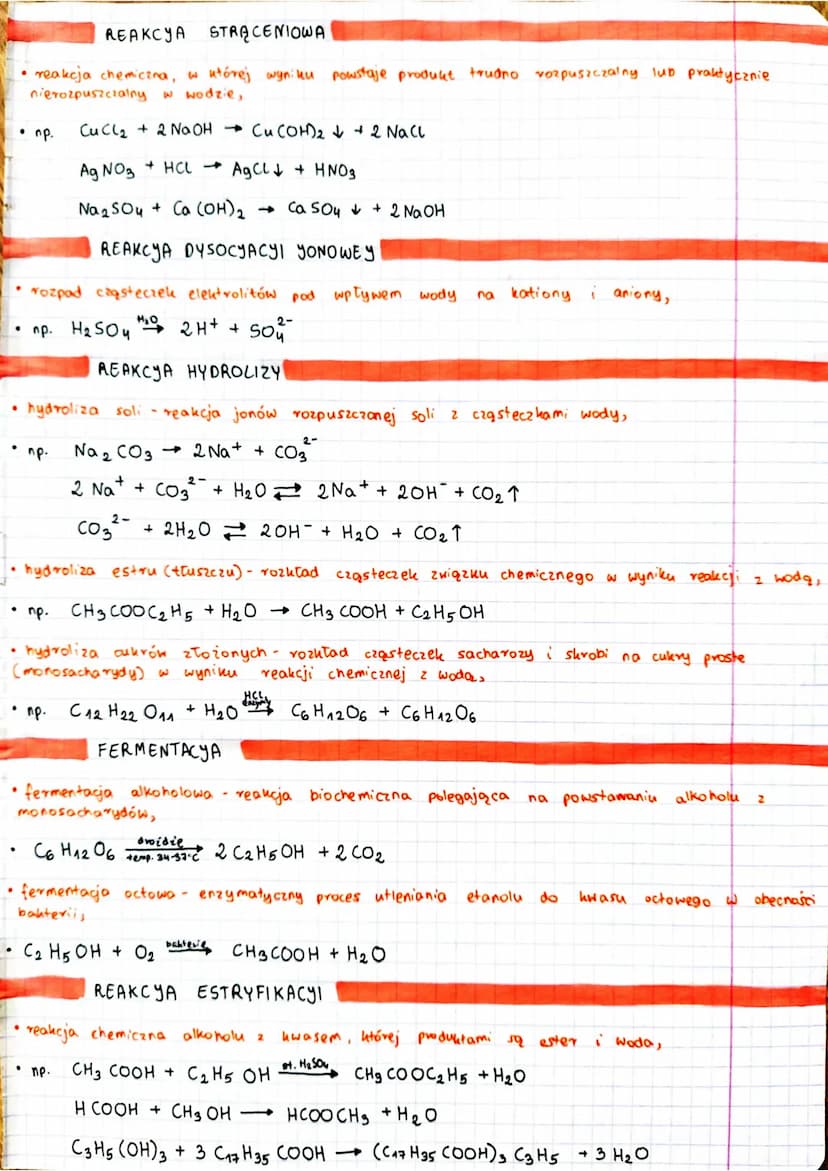 REAKCJA STRĄCENIOWA
• reakcja chemiczna, w której wyniku powstaje produkt trudno rozpuszczalny lub praktycznie
nierozpuszczalny w wodzie,
• np. CuCl₂ + 2 NaOH → Cu(OH)₂ ↓ + 2 NaCl
AgNO₃ + HCl → AgCl ↓ + HNO₃
Na₂SO₄ + Ca(OH)₂ → CaSO₄ ↓ + 2 NaOH
REAKCJA DYSOCJACJI JONOWEJ
• rozpad cząsteczek elektrolitów pod wpływem wody na kationy i aniony,
• np. H₂SO₄ →(H₂O) 2H⁺ + SO₄²⁻
REAKCJA HYDROLIZY
• hydroliza soli - reakcja jonów rozpuszczonej soli z cząsteczkami wody,
• np. Na₂CO₃ → 2Na⁺ + CO₃²⁻
2 Na⁺ + CO₃²⁻ + H₂O ⇄ 2Na⁺ + 2OH⁻ + CO₂↑
CO₃²⁻ + 2H₂O ⇄ 2OH⁻ + H₂O + CO₂↑
• hydroliza estru (tłuszczu) - rozkład cząsteczek związku chemicznego w wyniku reakcji z wodą,
• np. CH₃COOC₂H₅ + H₂O → CH₃COOH + C₂H₅OH
• hydroliza cukrów złożonych - rozkład cząsteczek sacharozy i skrobi na cukry proste
(monosacharydy) w wyniku reakcji chemicznej z wodą,
• np. C₁₂H₂₂O₁₁ + H₂O →(HCl, enzymy) C₆H₁₂O₆ + C₆H₁₂O₆
FERMENTACJA
• fermentacja alkoholowa - reakcja biochemiczna polegająca na powstawaniu alkoholu z
monosacharydów,
• C₆H₁₂O₆ →(drożdże, temp. 34-37°C) 2 C₂H₅OH + 2 CO₂
• fermentacja octowa - enzymatyczny proces utleniania etanolu do kwasu octowego w obecności
bakterii,
• C₂H₅OH + O₂ →(bakterie) CH₃COOH + H₂O
REAKCJA ESTRYFIKACJI
• reakcja chemiczna alkoholu z kwasem, której produktami są ester i woda,
• np. CH₃COOH + C₂H₅OH →(st. H₂SO₄) CH₃COOC₂H₅ + H₂O
HCOOH + CH₃OH → HCOOCH₃ + H₂O
C₃H₅(OH)₃ + 3 C₁₇H₃₅COOH → (C₁₇H₃₅COOH)₃C₃H₅ + 3 H₂O